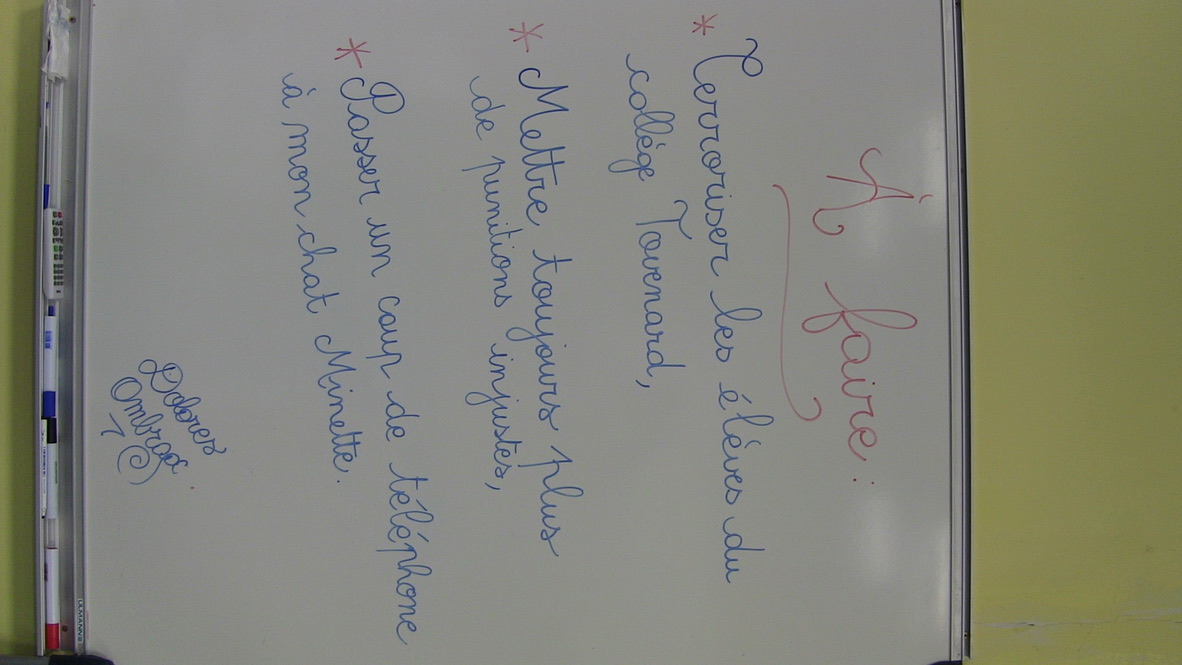 À faire :
* Terroriser les élèves du
collège Tavenard,
* Mettre toujours plus
de punitions injustes,
* Passer un coup de téléphone
à mon chat Minette.
Dolores
Ombrage